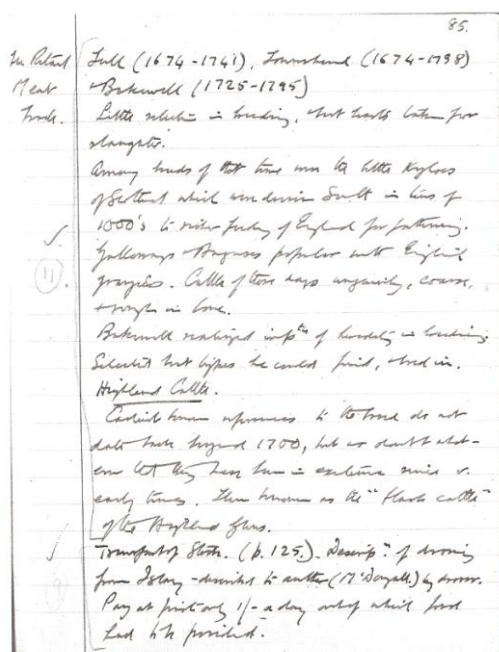 85.
The Retail Meat Trade.
Tull (1674-1741), Townshend (1674-1738)
+ Bakewell (1725-1795)
Little selection in breeding, + best beasts taken for
slaughter.
Among breeds of that time were the little Kyloes
of Scotland which were driven South in lines of
1000's to richer feeding of England for fattening.
Galloways + Anguses popular with English
graziers. Cattle of those days ungainly, coarse,
+ rough in bone.
Bakewell realized imp^ce of heredity in breeding.
Selected best types he could find, + bred in.
Highland Cattle.
Earliest known references to the breed do not
date back beyond 1700, but no doubt what-
ever but they have been in existence since v.
early times. Then known as the "black cattle"
of the Highland Glens.
Transport of Stock. (p. 125). Descrip^n of droving
from Islay - described to author (McDougall) by drover.
Pay at first only 1/- a day out of which food
had to be provided.
11.